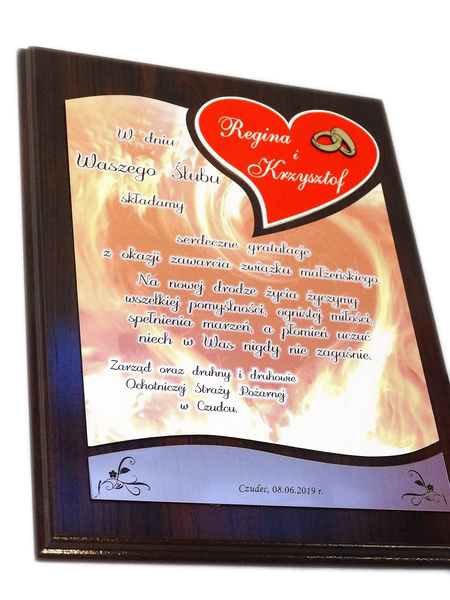 Regina
i
Krzysztof
W dniu
Waszego Ślubu
składamy
serdeczne gratulacje
z okazji zawarcia związku małżeńskiego.
Na nowej drodze życia życzymy
wszelkiej pomyślności, ognistej miłości,
spełnienia marzeń, a płomień uczuć
niech w Was nigdy nie zagaśnie.
Zarząd oraz druhny i druhowie
Ochotniczej Straży Pożarnej
w Czudcu.
Czudec, 08.06.2019 r.